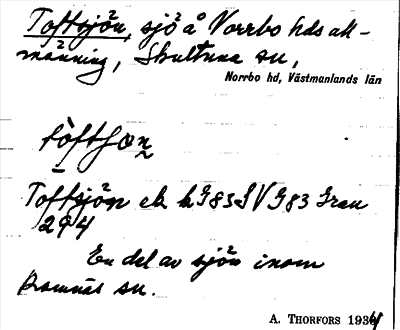 Toftsjön, sjö å Norrbo hds all-
männing, Skultuna sn,
Norrbo hd, Västmanlands län
tòftʃøn
Toftsjön ek
294
En del av sjön inom
Ramnäs sn.
A. THORFORS 1934